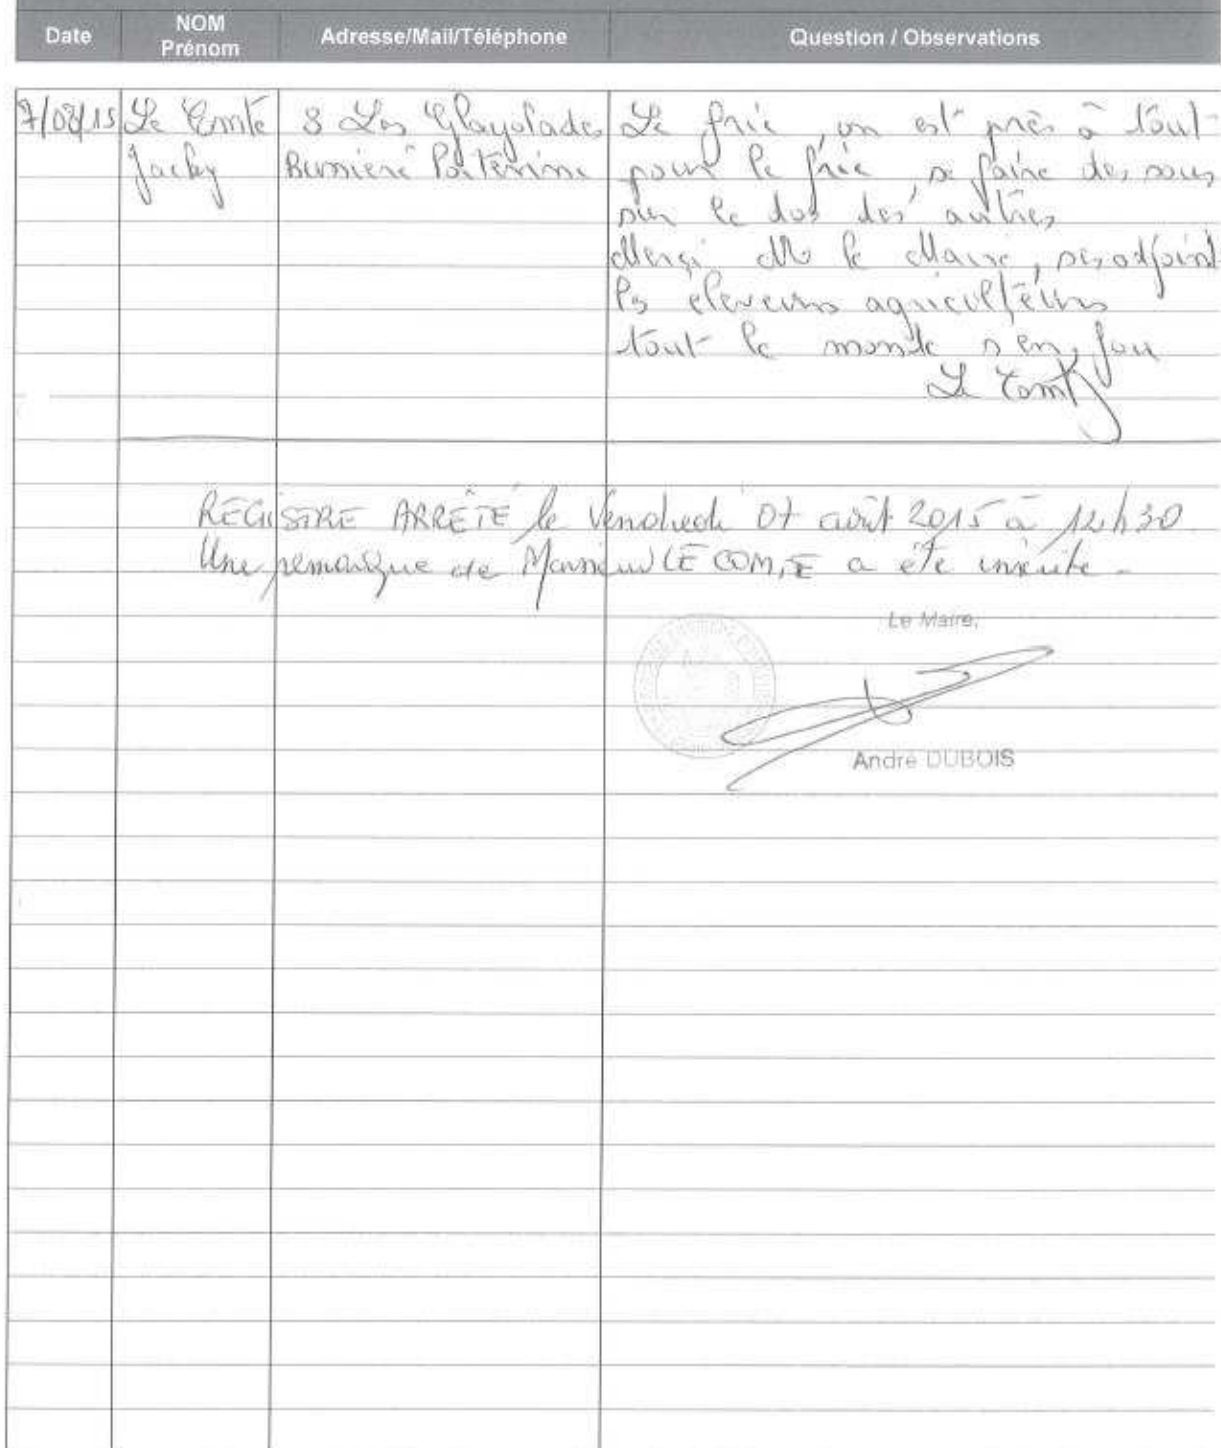 Date
NOM
Prénom
Adresse/Mail/Téléphone
Question / Observations
7/08/15
Le Comte
Jacky
8 Les
Le fric, on est près à tout
pour le fric, se faire des sous
sur le dos des autres
Merçi Mr le Maire, ses adjoint
les éleveurs agriculteurs
tout le monde s'en fou
Le Comte
REGISTRE ARRÊTÉ le Vendredi 07 août 2015 à 12h30
Une remarque de Monsieur LE COMTE a été inscrite.
Le Maire,
André DUBOIS